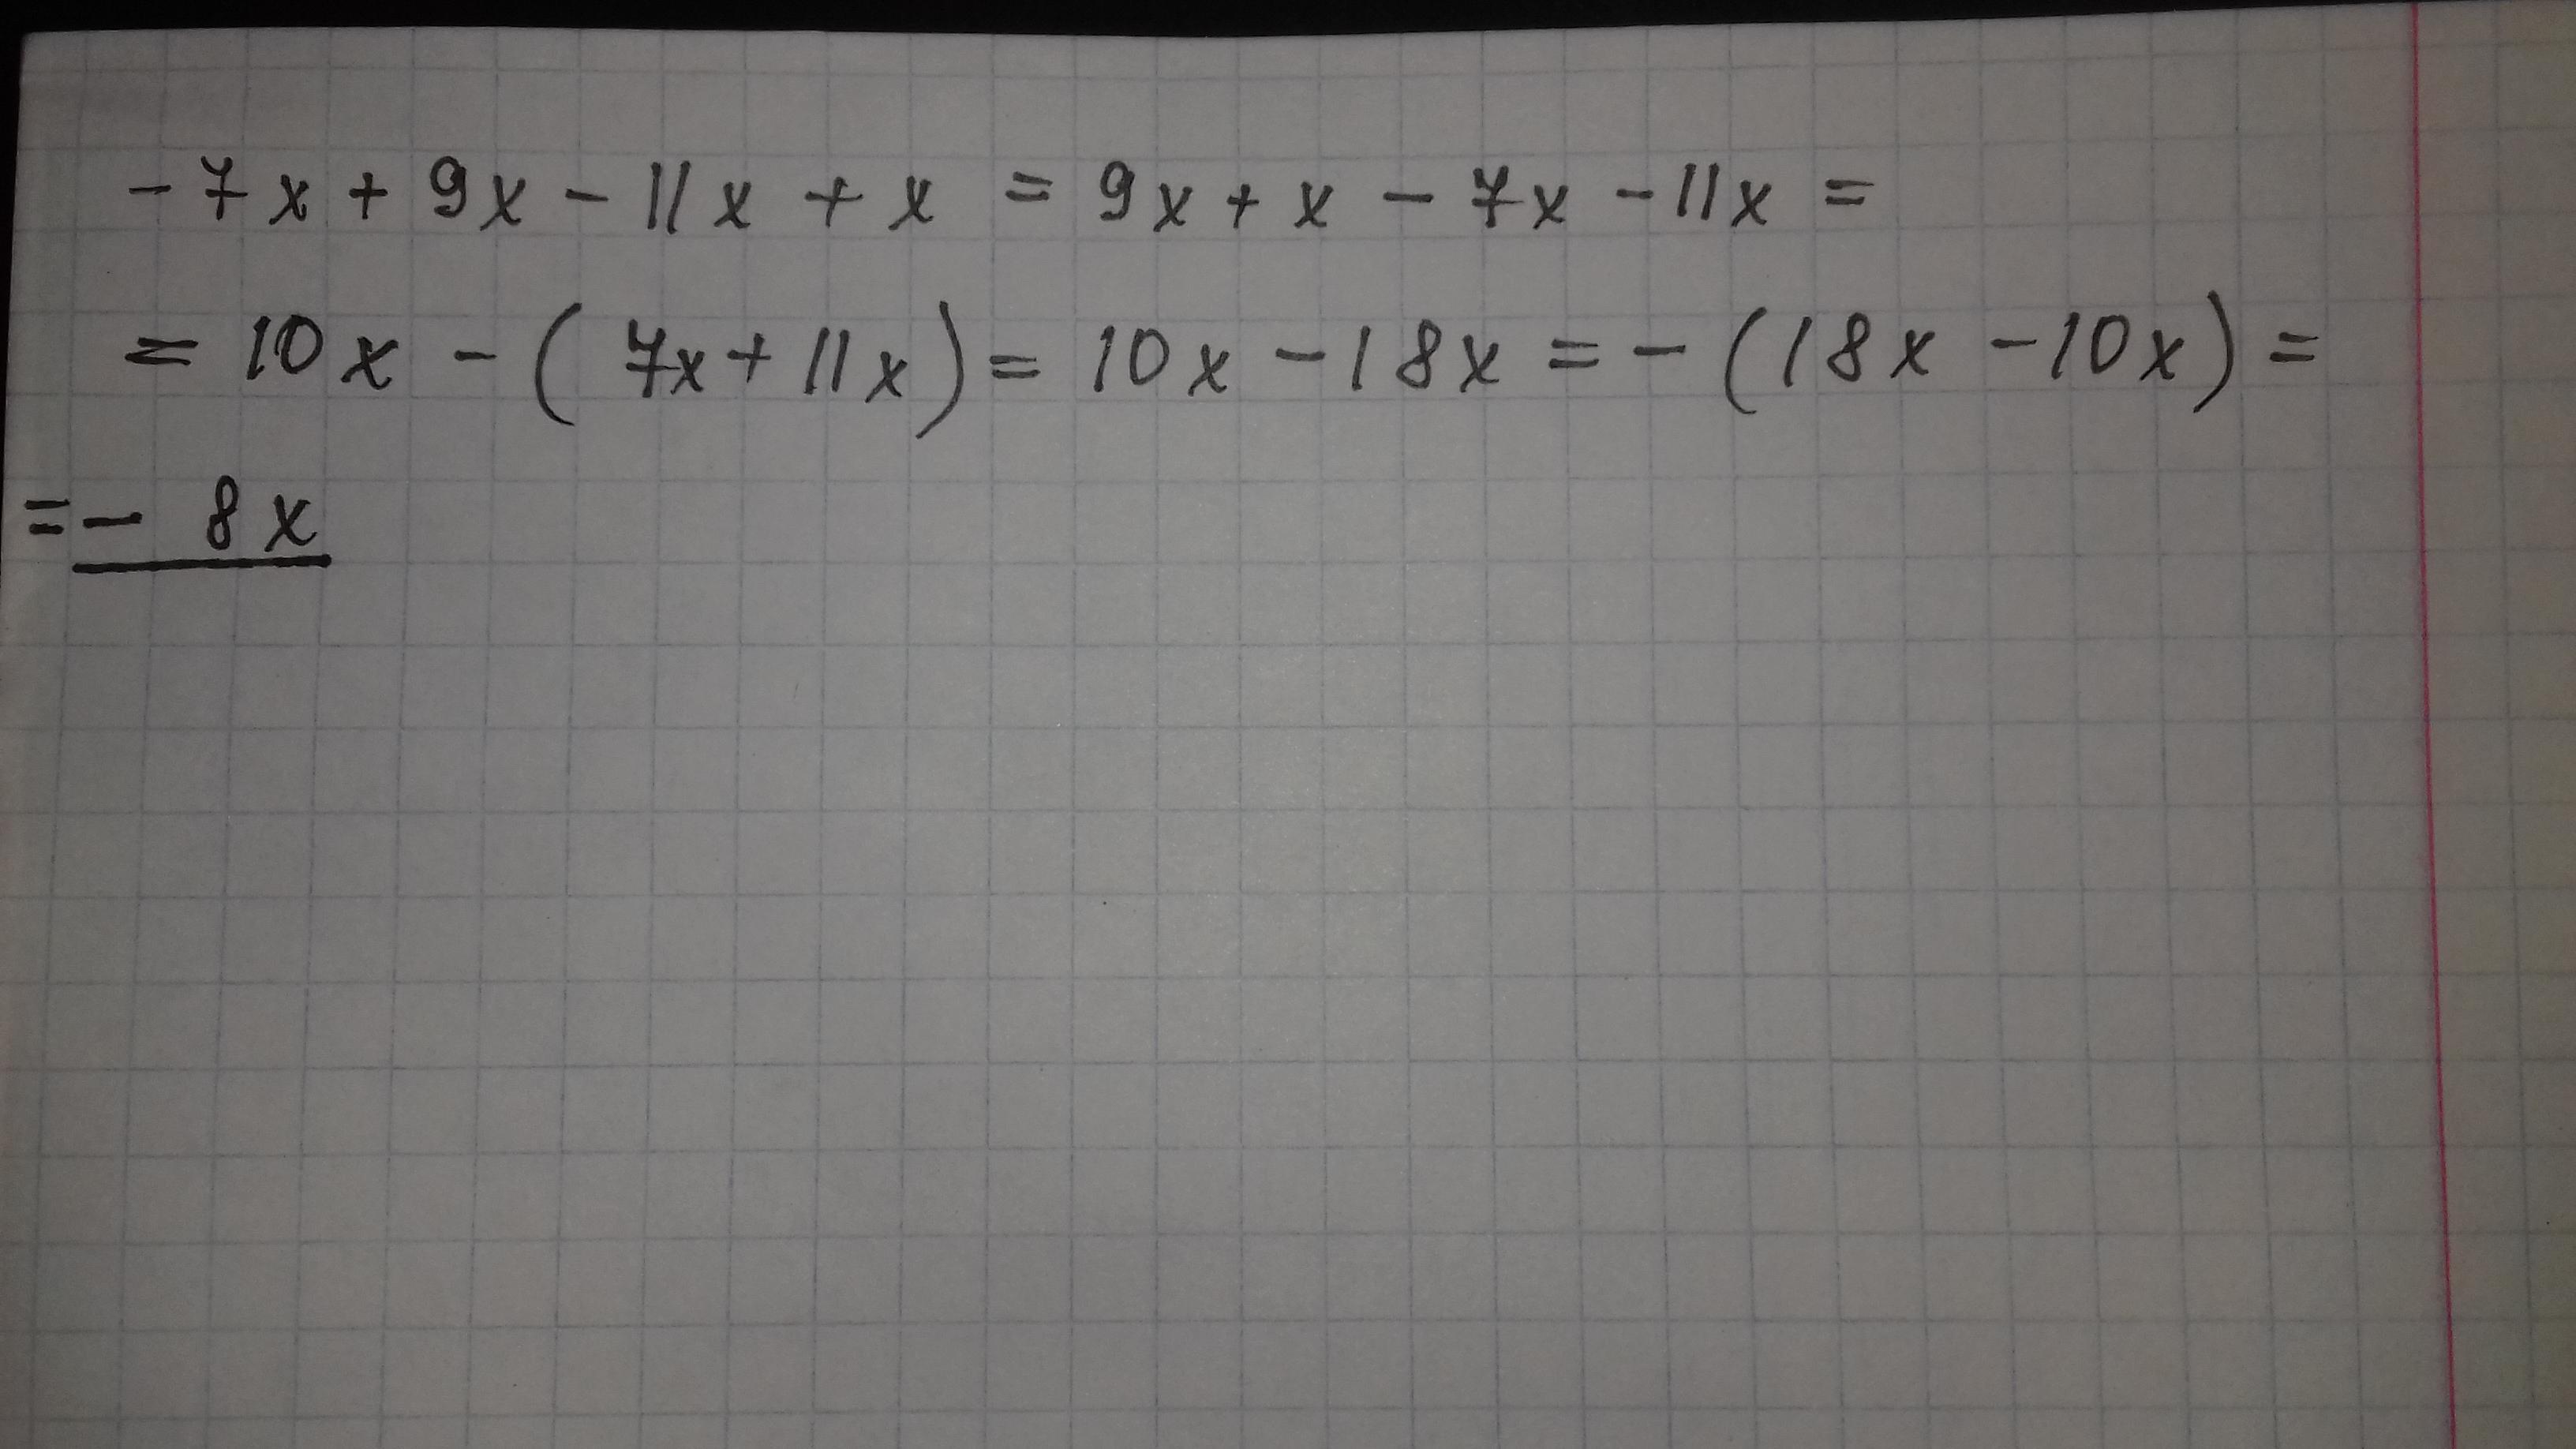 -7x + 9x - 11x + x = 9x + x - 7x - 11x =
= 10x - (7x + 11x) = 10x - 18x = - (18x - 10x) =
= - 8x